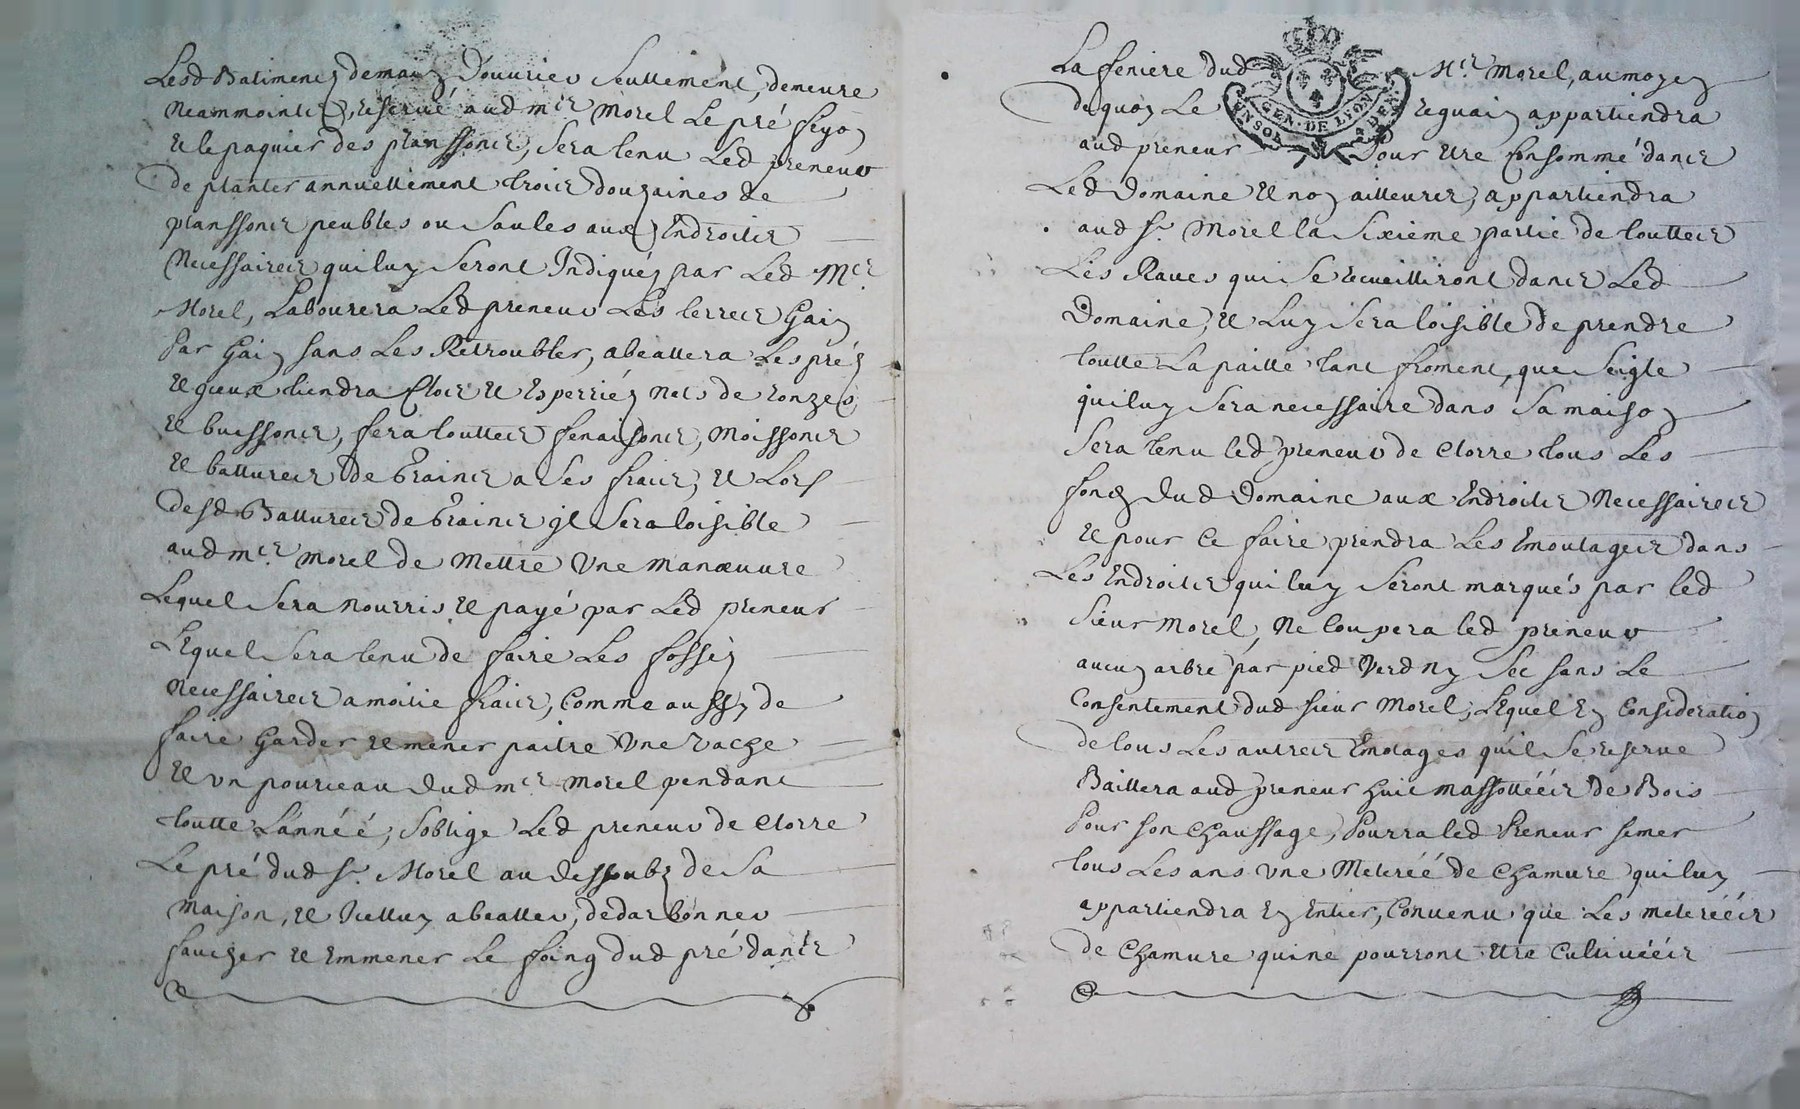 Lesd Batiments demain d'ouvrier seullement, demeure
neammoints reservé aud mtre Morel le pré feyon
et le paquier des planssons, sera tenu led preneur
de planter annuellement trois douzaines de
planssons peubles ou saules aux Endroits
necessaires qui luy seront Indiqués par led Mtre
Morel, Labourera led preneur les terres Gain
par Gain sans les Retroubler, abeallera les prés
et yceux tiendra clos et esperriés nets de ronzes
et buissons, fera touttes fenaisons, moissons
et battures de Grains a ses frais, et lors
desd Battures de Grains jl sera loisible
aud mtre Morel de mettre une manœuvre
Lequel sera nourris et payé par led preneur
Lequel sera tenu de faire les fossés
necessaires a moitie frais, comme aussy de
faire garder et mener paitre une vache
et un pourceau dud mtre Morel pendant
toutte l'année, s'oblige led preneur de clorre
Le pré dud sr. Morel au dessoubs de sa
maison, et icelluy abealler, dedarbonner
faucher et emmener le foing dud pré dans
La feniere dud Mtre Morel, au moyen
GEN. DE LYON
de quoy le reguain appartiendra
aud preneur Pour etre consommé dans
Led domaine et non ailleurs, appartiendra
aud sr. Morel la sixieme partie de touttes
Les Raves qui se recueilliront dans led
Domaine, et luy sera loisible de prendre
toutte la paille tant froment, que seigle
qui luy sera necessaire dans sa maison
sera tenu led preneur de clorre tous les
fonds dud domaine aux Endroits necessaires
et pour ce faire prendra les Emoutages dans
Les Endroits qui luy seront marqués par led
sieur Morel, ne coupera led preneur
aucun arbre par pied verd ny sec sans le
consentement dud sieur Morel, Lequel en consideration
de tous les autres Emotages qu'il se reserve
Baillera aud preneur huit massottéés de Bois
pour son chauffage, Pourra led Preneur semer
tous les ans une meteréé de chamure qui luy
appartiendra en entier, Convenu que les meteréés
de chamure qui ne pourront etre cultivéés